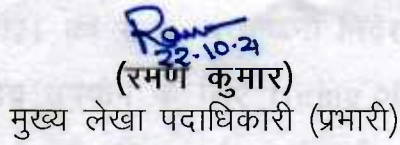 Ram
22.10.21
(रमण कुमार)
मुख्य लेखा पदाधिकारी (प्रभारी)